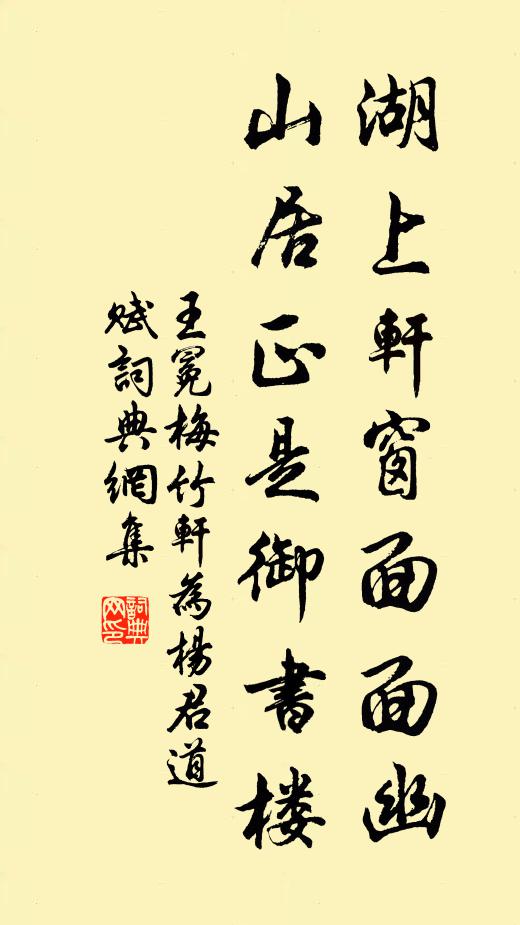 湖上軒窗面面幽
山居正是御書楼
王冕梅竹軒為楊君道
賦詞典網集
詞典网印